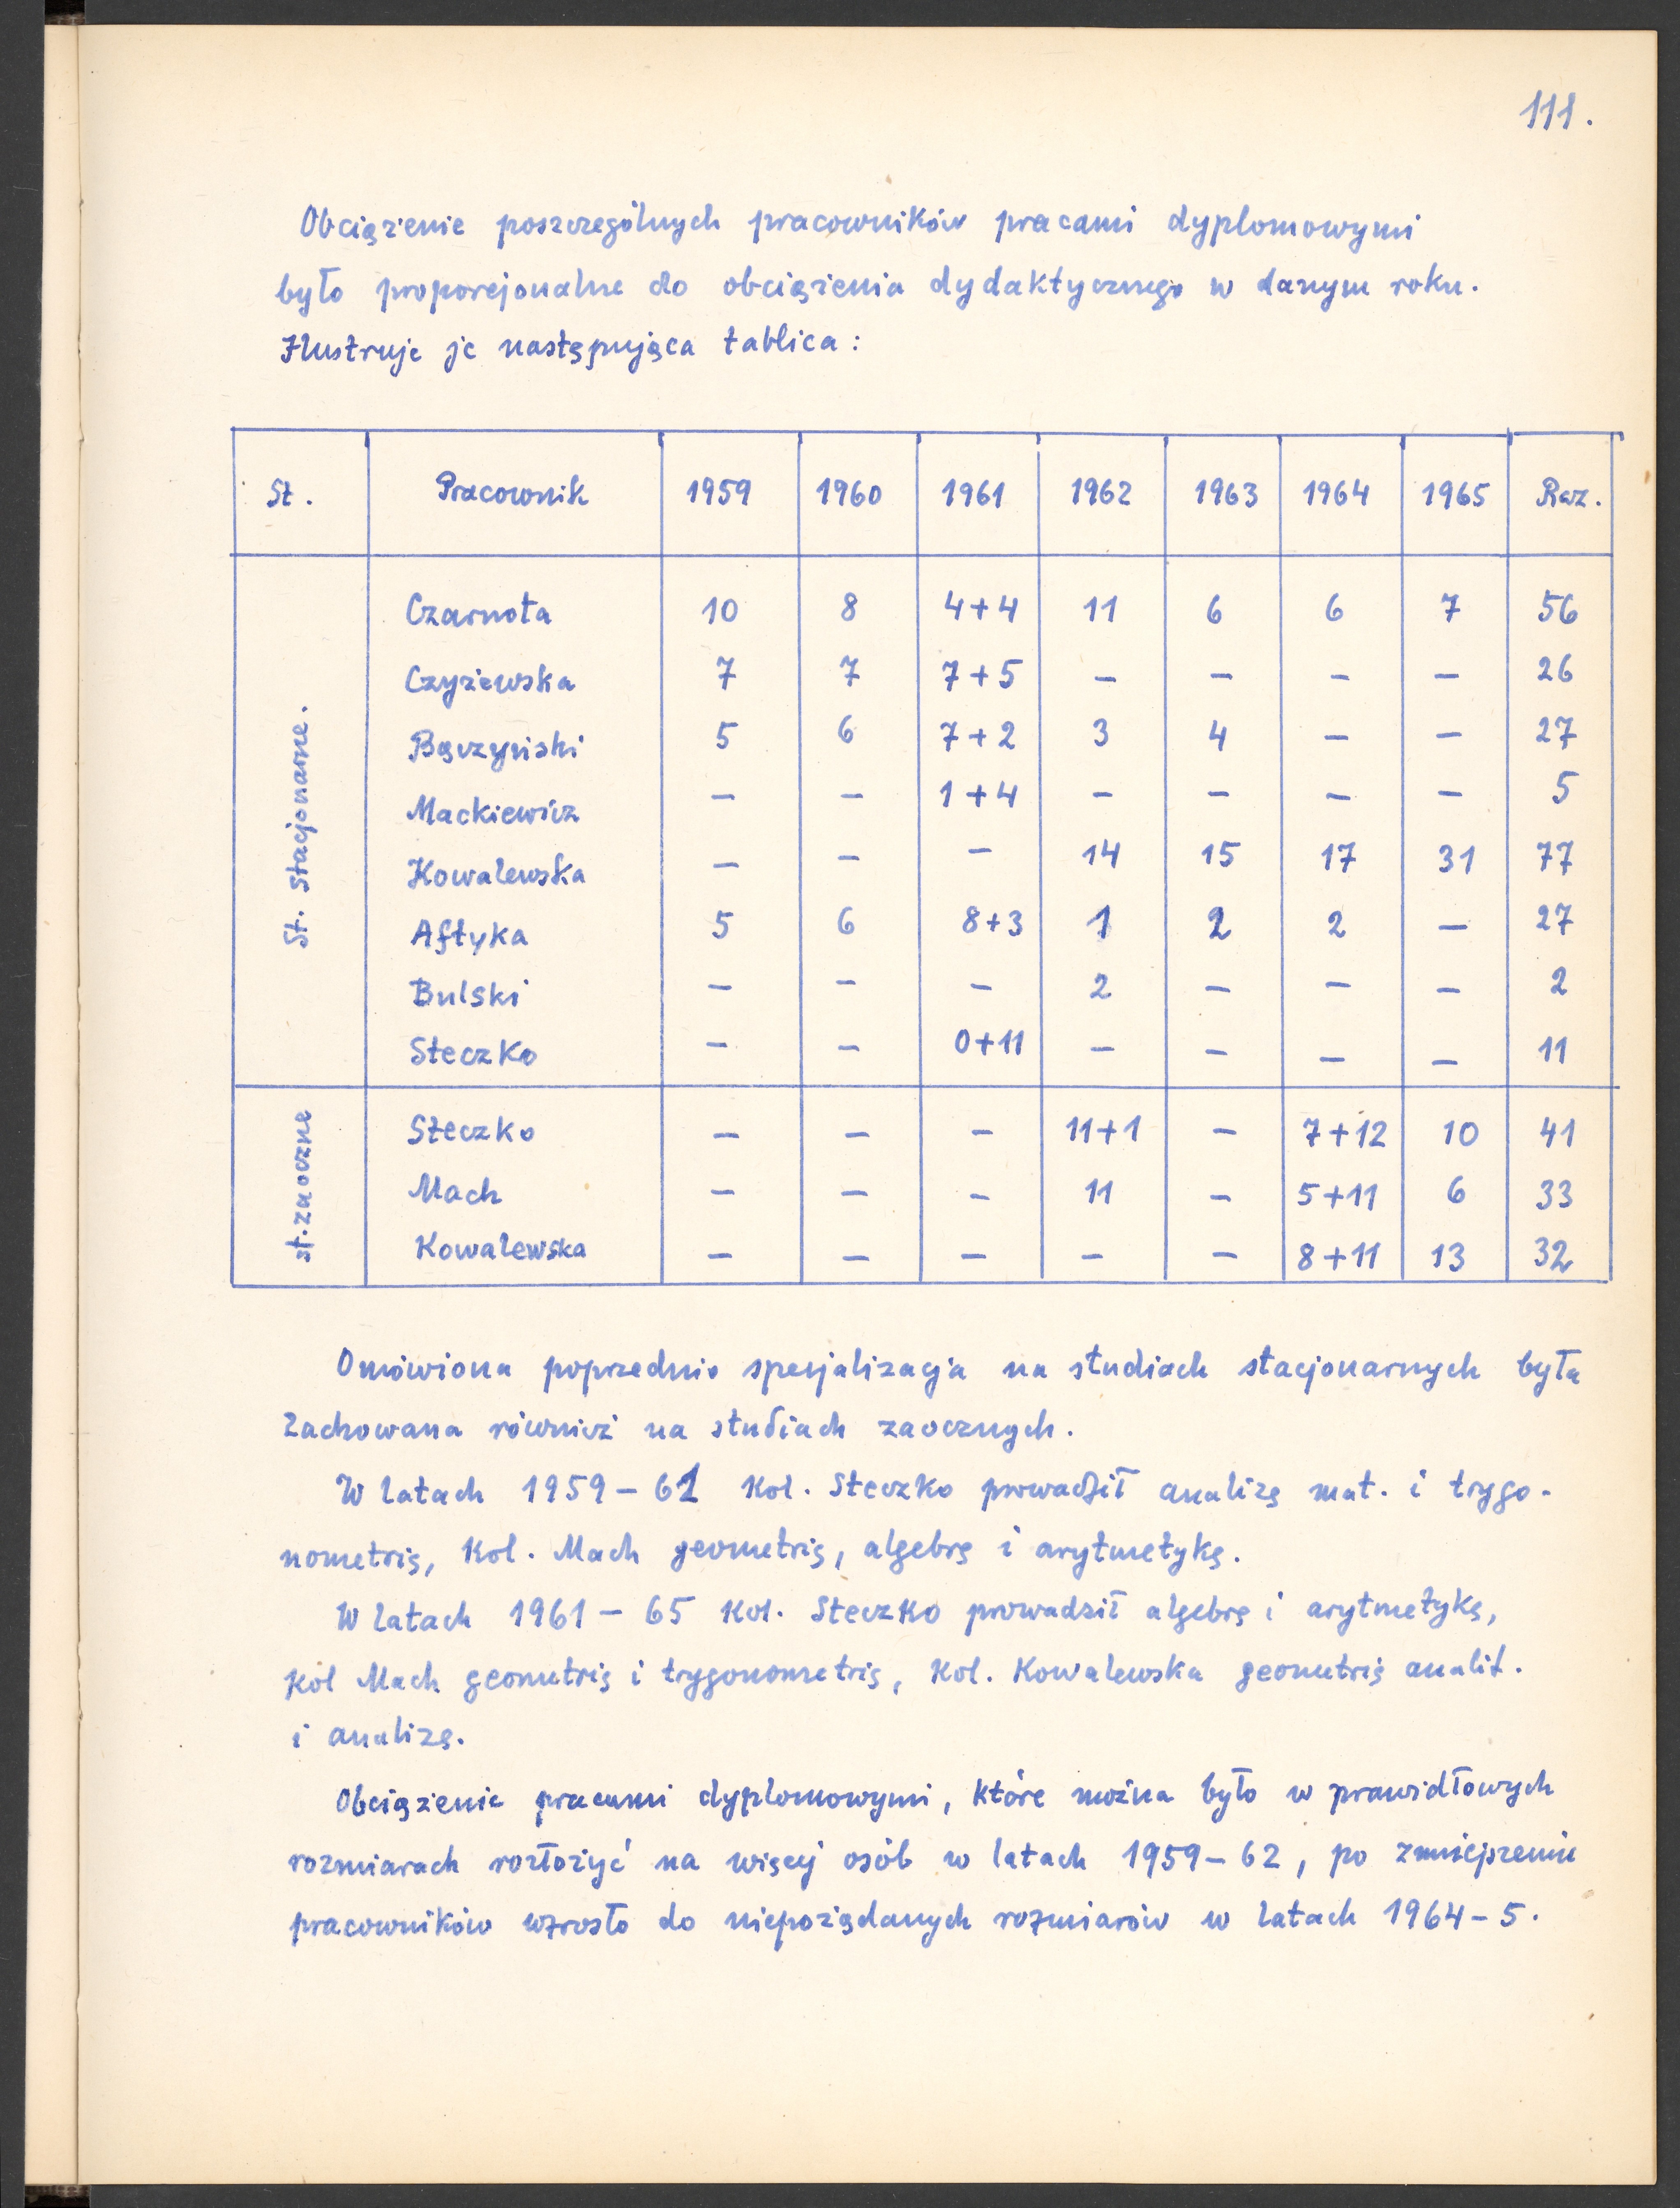 111.
Obciążenie poszczególnych pracowników pracami dyplomowymi
było proporcjonalne do obciążenia dydaktycznego w danym roku.
Ilustruje je następująca tablica:
St. Pracownik 1959 1960 1961 1962 1963 1964 1965 Raz.
St. stacjonarne.
Czarnota 10 8 4+4 11 6 6 7 56
Czyżewska 7 7 7+5 – – – – 26
Bączyński 5 6 7+2 3 4 – – 27
Mackiewicz – – 1+4 – – – – 5
Kowalewska – – – 14 15 17 31 77
Aftyka 5 6 8+3 1 2 2 – 27
Bulski – – – 2 – – – 2
Steczko – – 0+11 – – – – 11
st. zaoczne
Steczko – – – 11+1 – 7+12 10 41
Mach – – – 11 – 5+11 6 33
Kowalewska – – – – – 8+11 13 32
Omówiona poprzednio specjalizacja na studiach stacjonarnych była
zachowana również na studiach zaocznych.
W latach 1959–61 kol. Steczko prowadził analizę mat. i trygo-
nometrię, kol. Mach geometrię, algebrę i arytmetykę.
W latach 1961–65 kol. Steczko prowadził algebrę i arytmetykę,
kol Mach geometrię i trygonometrię, kol. Kowalewska geometrię analit.
i analizę.
Obciążenie pracami dyplomowymi, które można było w prawidłowych
rozmiarach rozłożyć na więcej osób w latach 1959–62, po zmniejszeniu
pracowników wzrosło do niepożądanych rozmiarów w latach 1964–5.